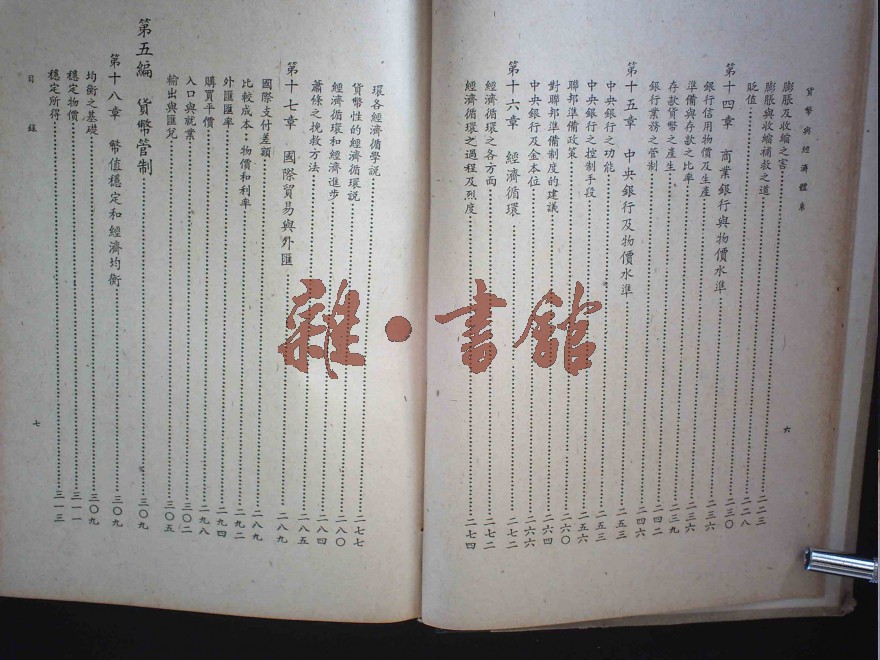 貨幣與經濟體系
膨脹及收縮之害……二二三
膨脹與收縮補救之道……二二三
貶值……二二八
第十四章 商業銀行與物價水準……二三〇
銀行信用物價及生產……二三六
準備與存款之比率……二三六
存款貨幣之產生……二三九
銀行業務之管制……二四二
第十五章 中央銀行及物價水準……二四六
中央銀行之功能……二五三
中央銀行之控制手段……二五三
聯邦準備政策……二六〇
對聯邦準備制度的建議……二六四
中央銀行及金本位……二六六
第十六章 經濟循環……二七二
經濟循環之各方面……二七二
經濟循環之過程及烈度……二七四
六
環各經濟循學說……二七七
貨幣性的經濟循環說……二八〇
經濟循環和經濟進步……二八四
蕭條之挽救方法……二八五
第十七章 國際貿易與外匯……二八九
國際支付差額……二八九
比較成本:物價和利率……二九二
外匯匯率……二九四
購買平價……二九八
入口與就業……三〇二
輸出與匯兌……三〇五
第五編 貨幣管制……三〇九
第十八章 幣值穩定和經濟均衡……三〇九
均衡之基礎……三〇九
穩定物價……三一一
穩定所得……三一三
目錄
七
雜·書館